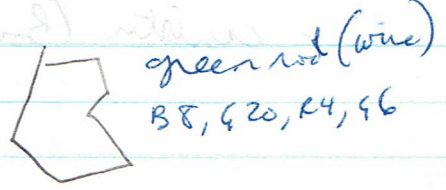 green rod (wire)
B8, G20, R4, G6